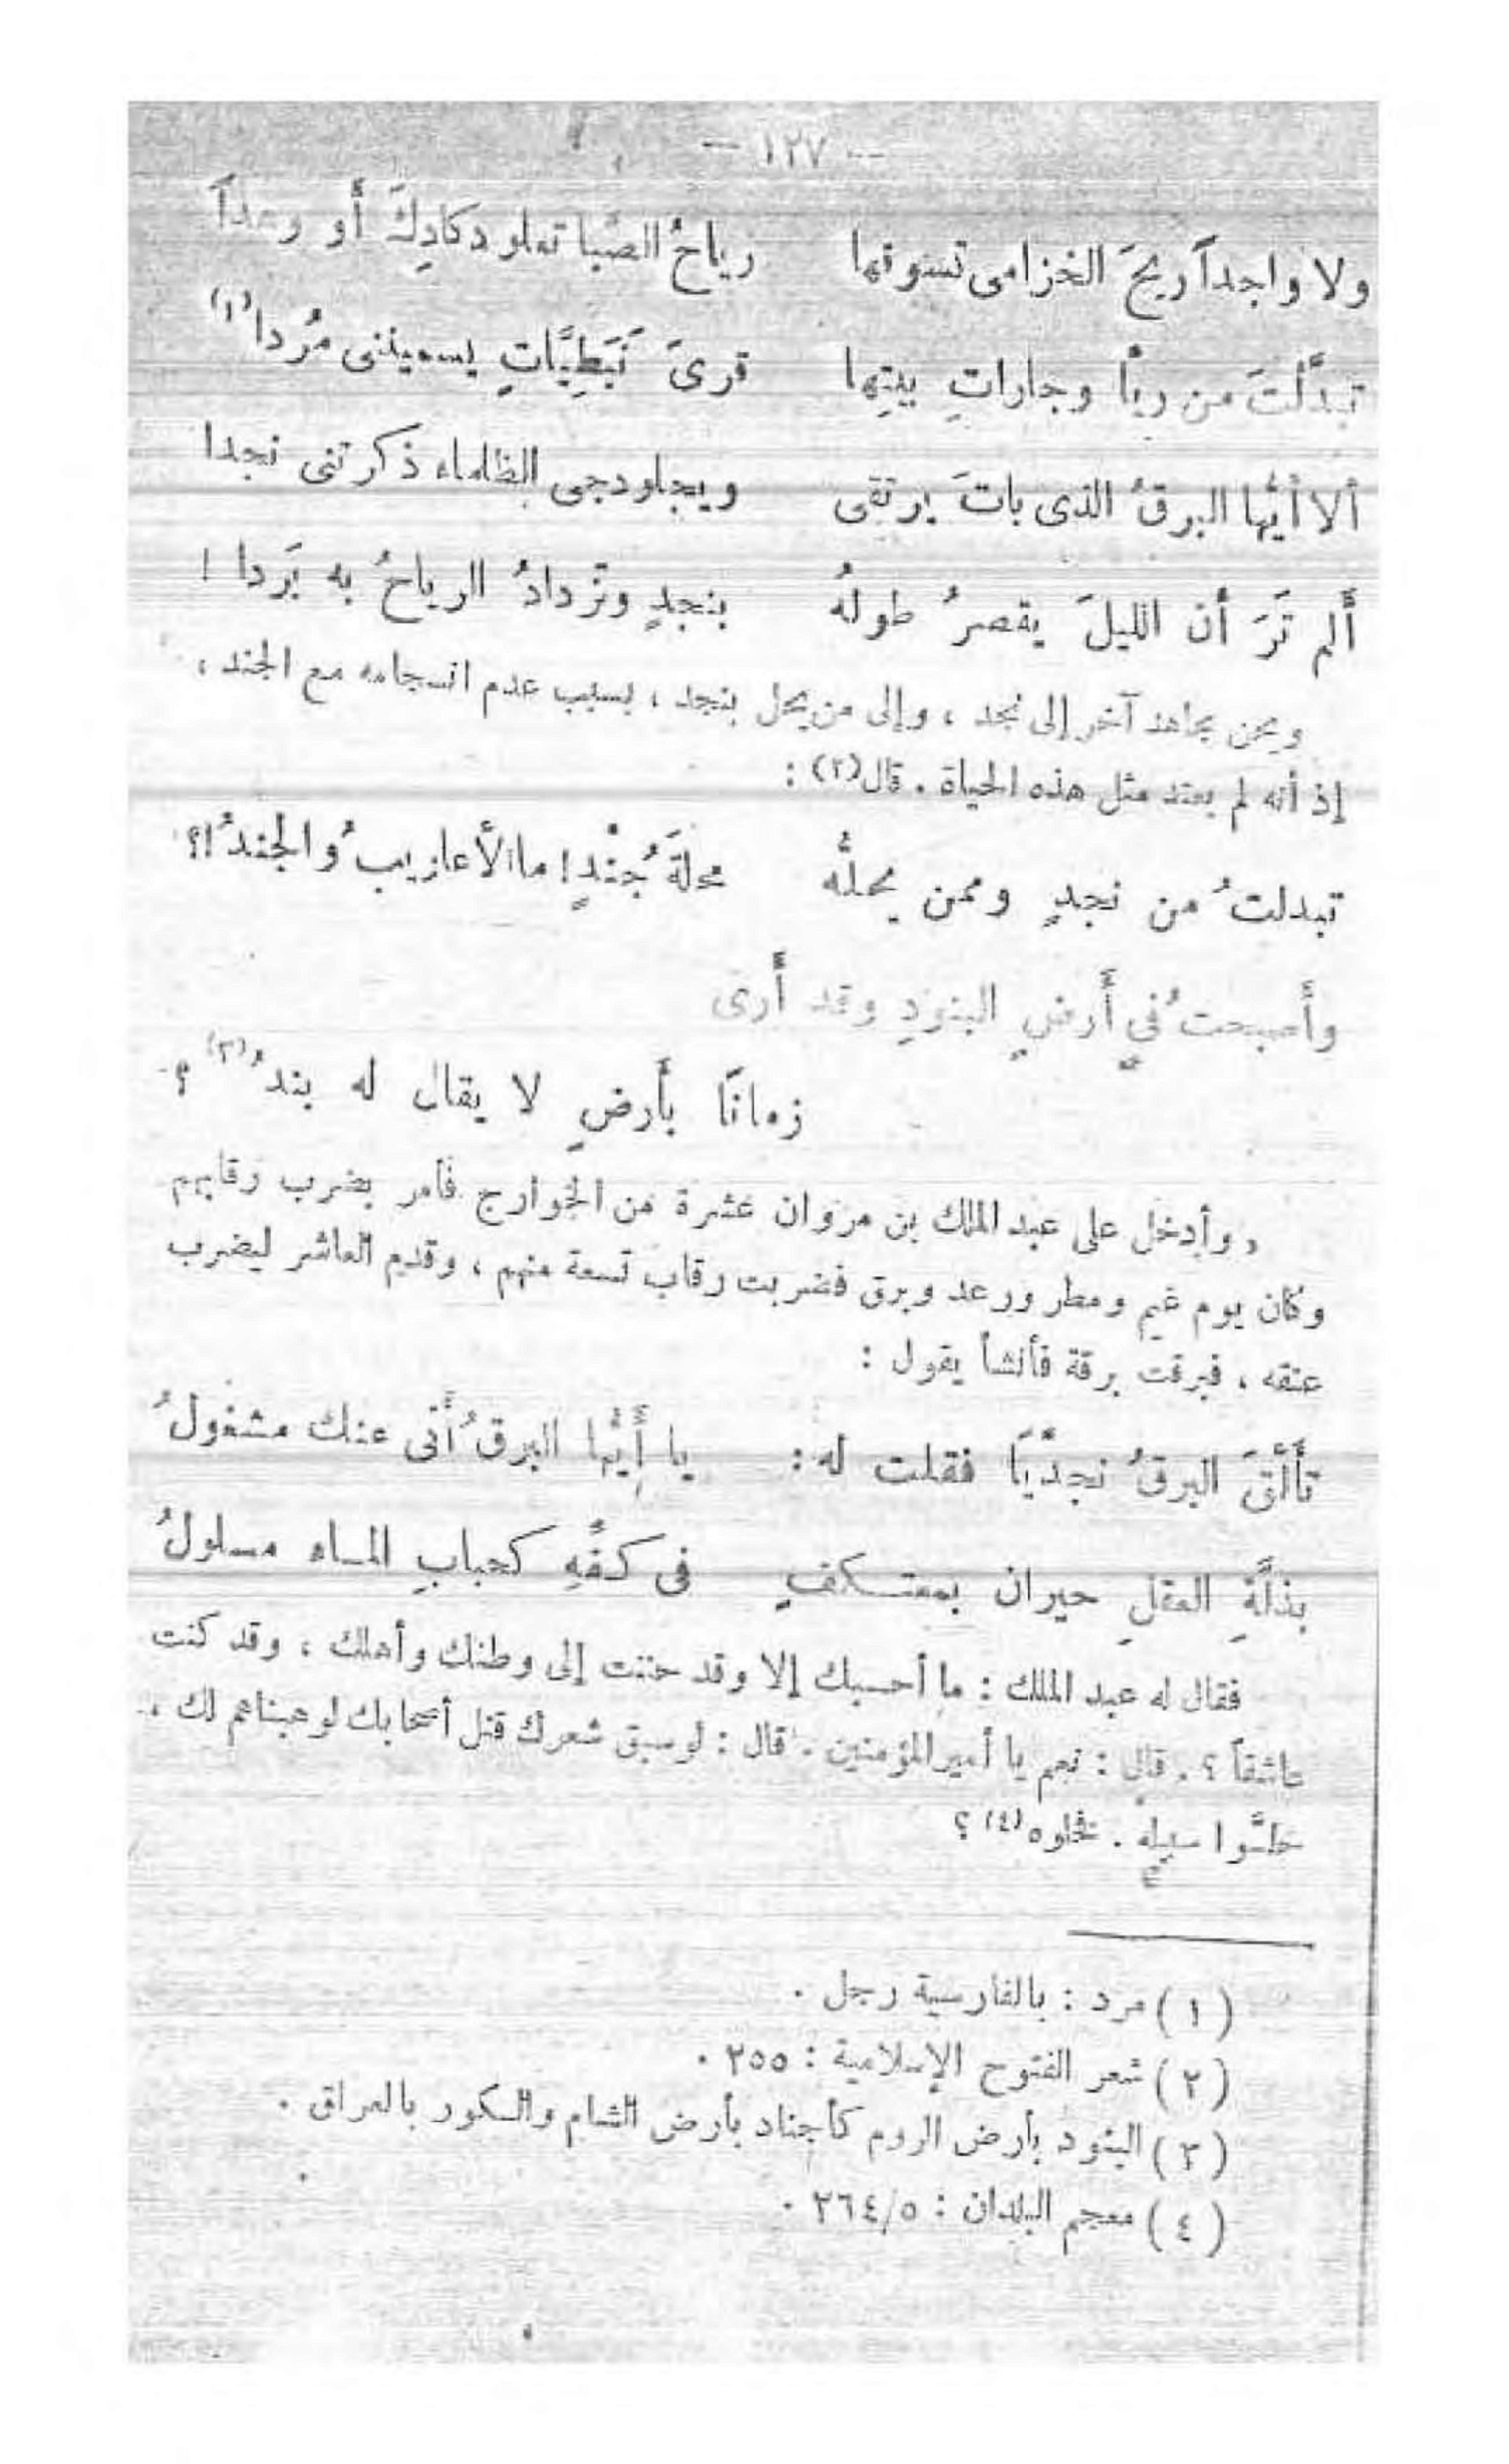 — ١٢٧ —
ولا واجداً ريحَ الخزامى تسوقها رياحُ الصَّبا تعلو دكادِكَ أو وهداً
تبدَّلتَ من ريَّا وجاراتِ بيتِها قرىَ نَبَطِيَّاتٍ يسمينى مُردا(١)
ألا أيُّها البرقُ الذى باتَ يرتقى ويجلو دجى الظلماء ذكرتنى نجدا
ألم تَرَ أن الليلَ يقصرُ طولهُ بنجدٍ وتزدادُ الرياحُ به بَردا !
ويحن مجاهد آخر إلى نجد ، وإلى من يحل بنجد ، بسبب عدم انسجامه مع الجند ،
إذ أنه لم يعتد مثل هذه الحياة . قال(٢) :
تبدلتُ من نجدٍ وممن يحلُّه محلةَ جُنْدٍ! ما الأعاريبُ والجندُ !؟
وأصبحتُ في أرضِ البنودِ وقد أرى
زمانًا بأرضٍ لا يقال له بندُ(٣) ؟
« وأدخل على عبد الملك بن مروان عشرة من الخوارج فأمر بضرب رقابهم
وكان يوم غيم ومطر ورعد وبرق فضربت رقاب تسعة منهم ، وقدم العاشر ليضرب
عنقه ، فبرقت برقة فأنشأ يقول :
تألقَ البرقُ نجدَّيَا فقلت له : يا أيُّها البرقُ أنى عنك مشغولُ
بذلَّةِ العقلِ حيران بمعتكفٍ فى كفِّهِ كحبابِ الماء مسلولُ
فقال له عبد الملك : ما أحسبك إلا وقد حننت إلى وطنك وأهلك ، وقد كنت
عاشقاً ؟ . قال : نعم يا أمير المؤمنين . قال : لو سبق شعرك قتل أصحابك لوهبناهم لك ،
خلُّوا سبيله . فخلوه(٤) ؟
( ١ ) مرد : بالفارسية رجل .
( ٢ ) شعر الفتوح الإسلامية : ٢٥٥ .
( ٣ ) البنود بأرض الروم كأجناد بأرض الشام والكور بالعراق .
( ٤ ) معجم البلدان : ٢٦٤/٥ .